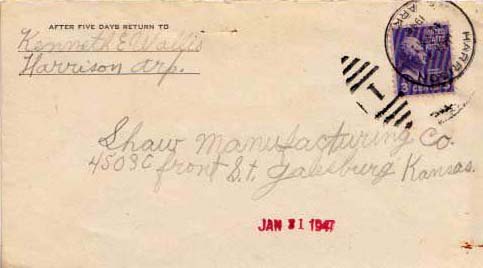 AFTER FIVE DAYS RETURN TO
Kenneth E Wallis
Harrison Arp.
HARRISON
ARK.
UNITED STATES
3 CENTS 3
1
Shaw Manufacturing Co.
4503C front St. Galesburg Kansas.
JAN 31 1947